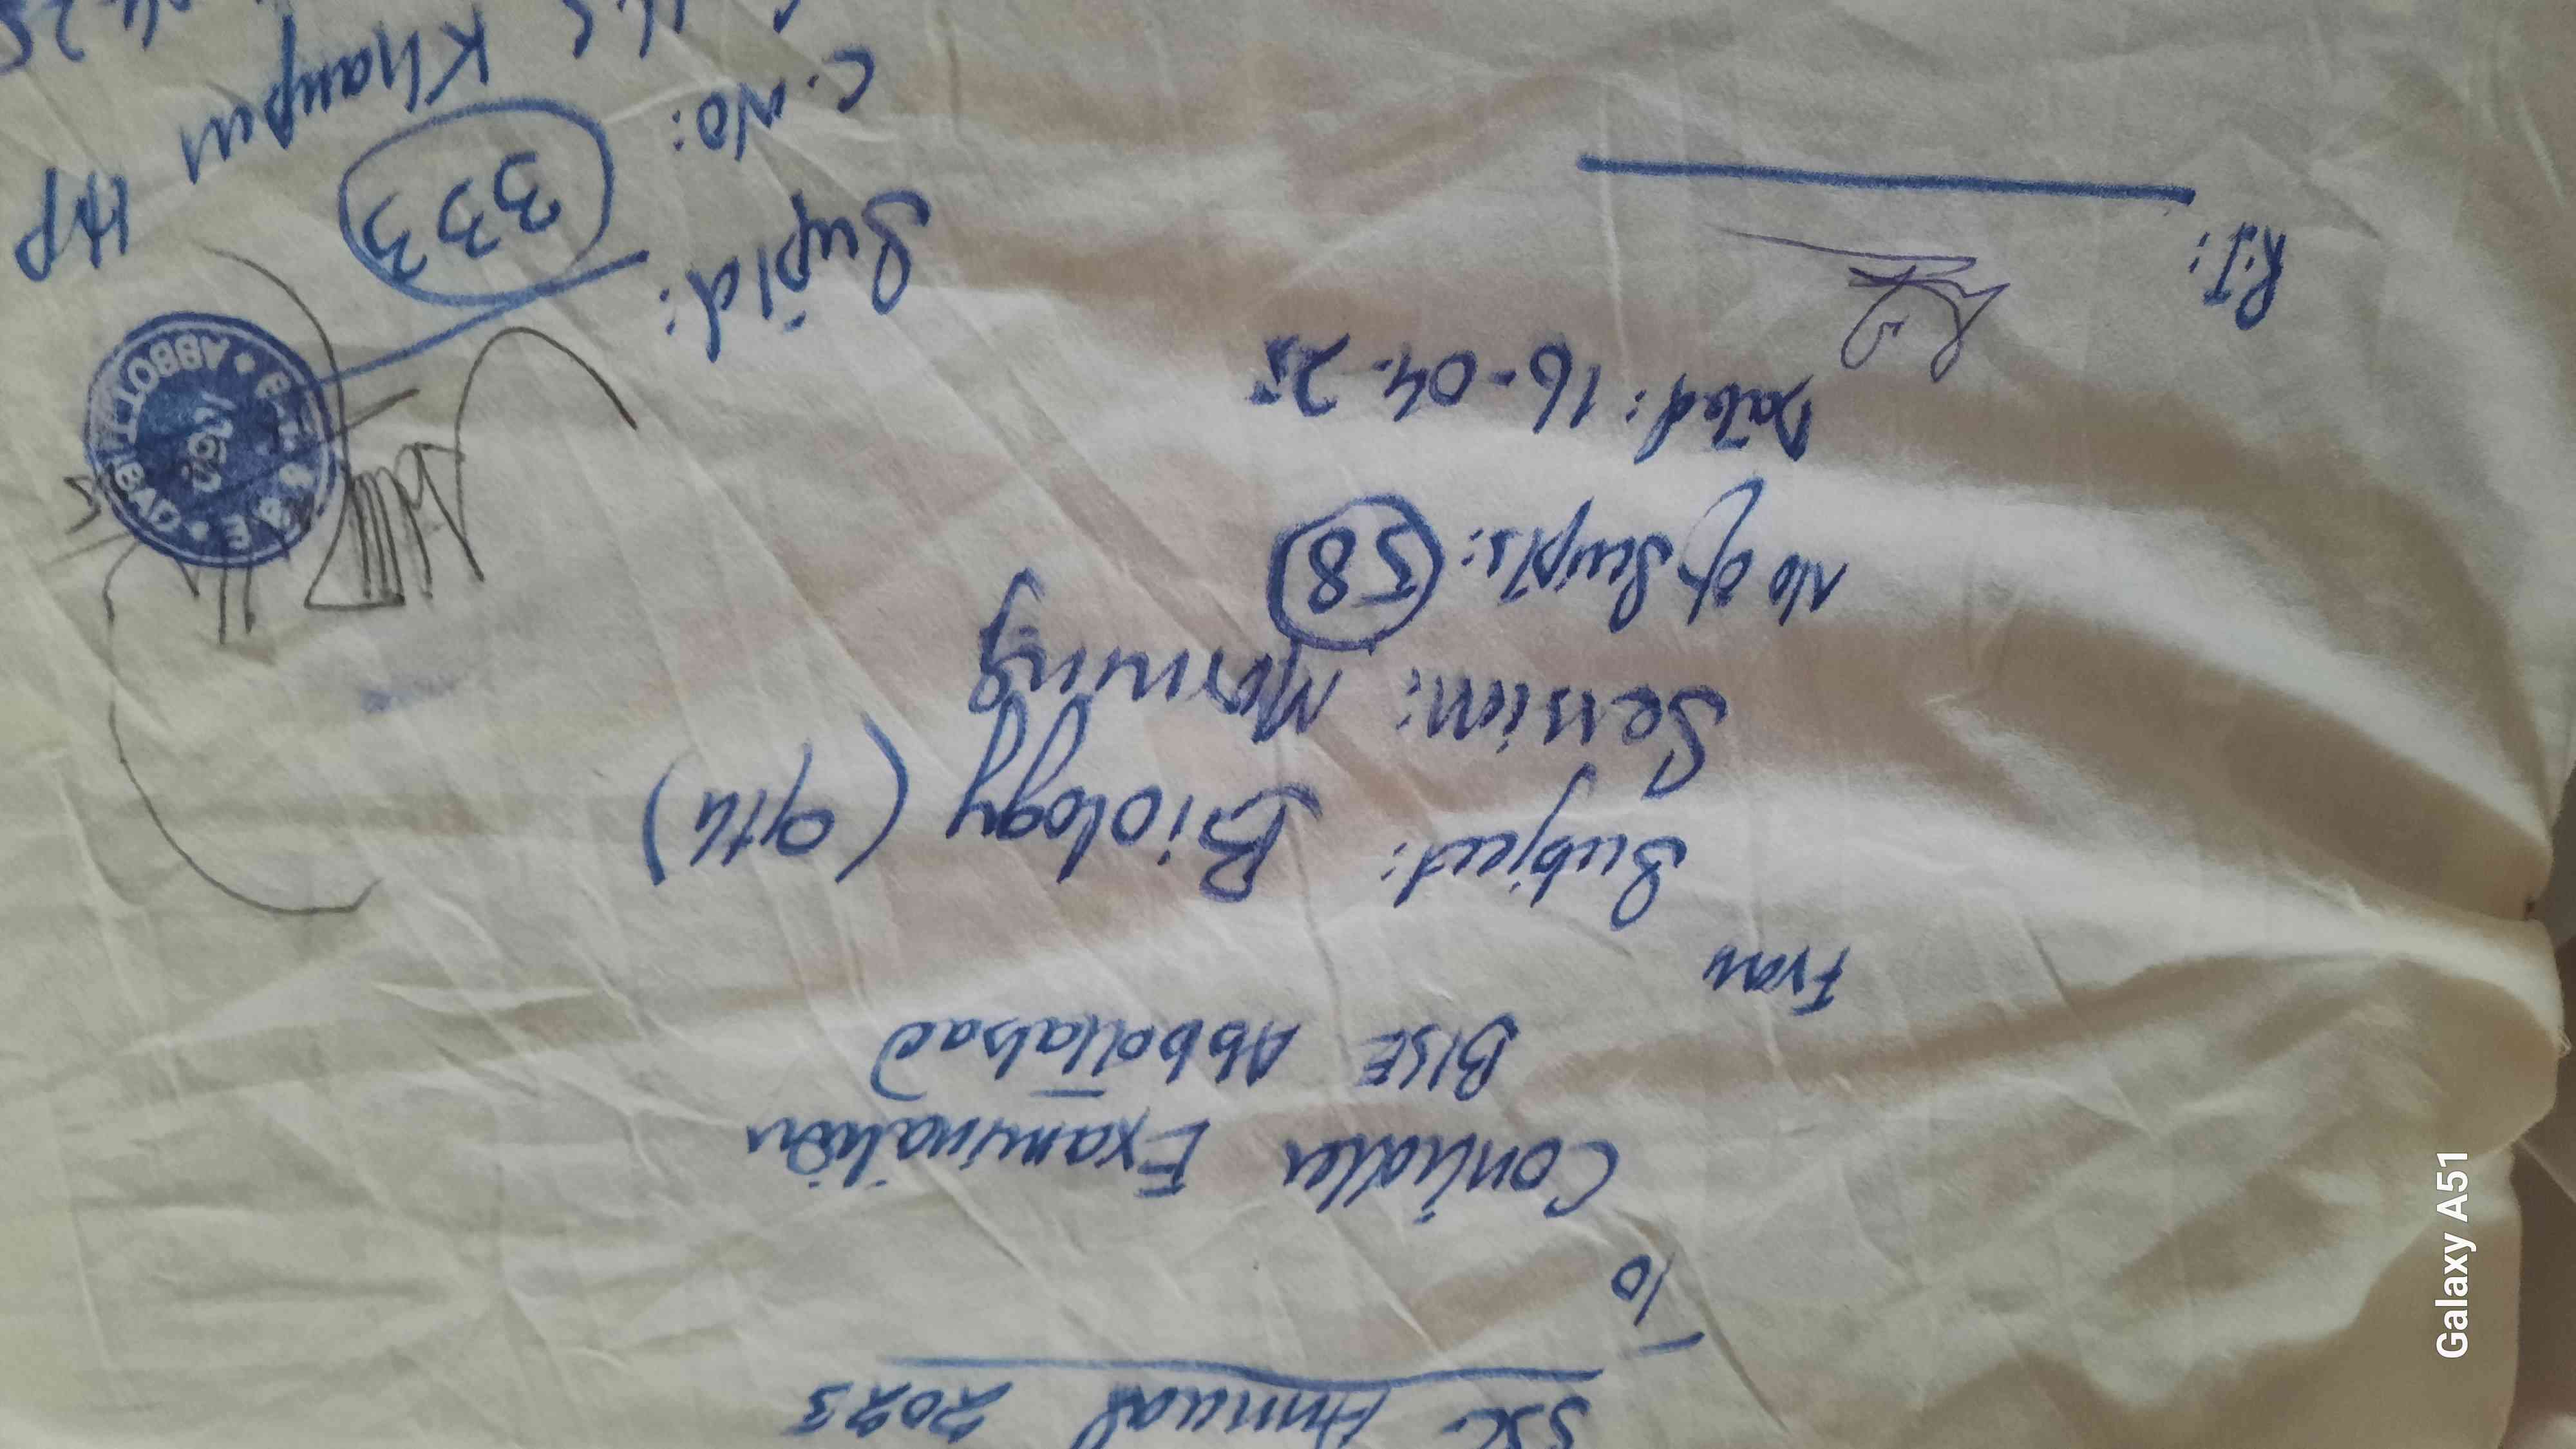 SSC Annual 2023
To
Controller Examination
BISE Abbottabad
From
Subject: Biology (9th)
Session: Morning
No of Scripts: 58
Dated: 16-04-25
R.I:
Suptd:
C.No: 333
Khanpur
B.I.S.E ABBOTTABAD
Galaxy A51